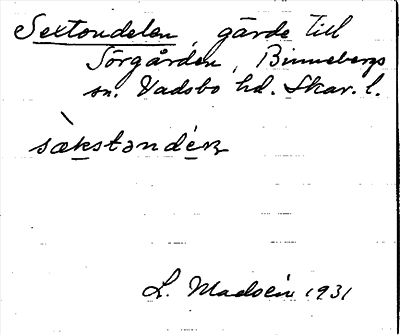 Sextondelen, gärde till
Sörgården, Binnebergs
sn. Vadsbo hd. Skar. l.
sȁkstəndén
L. Madsén 1931